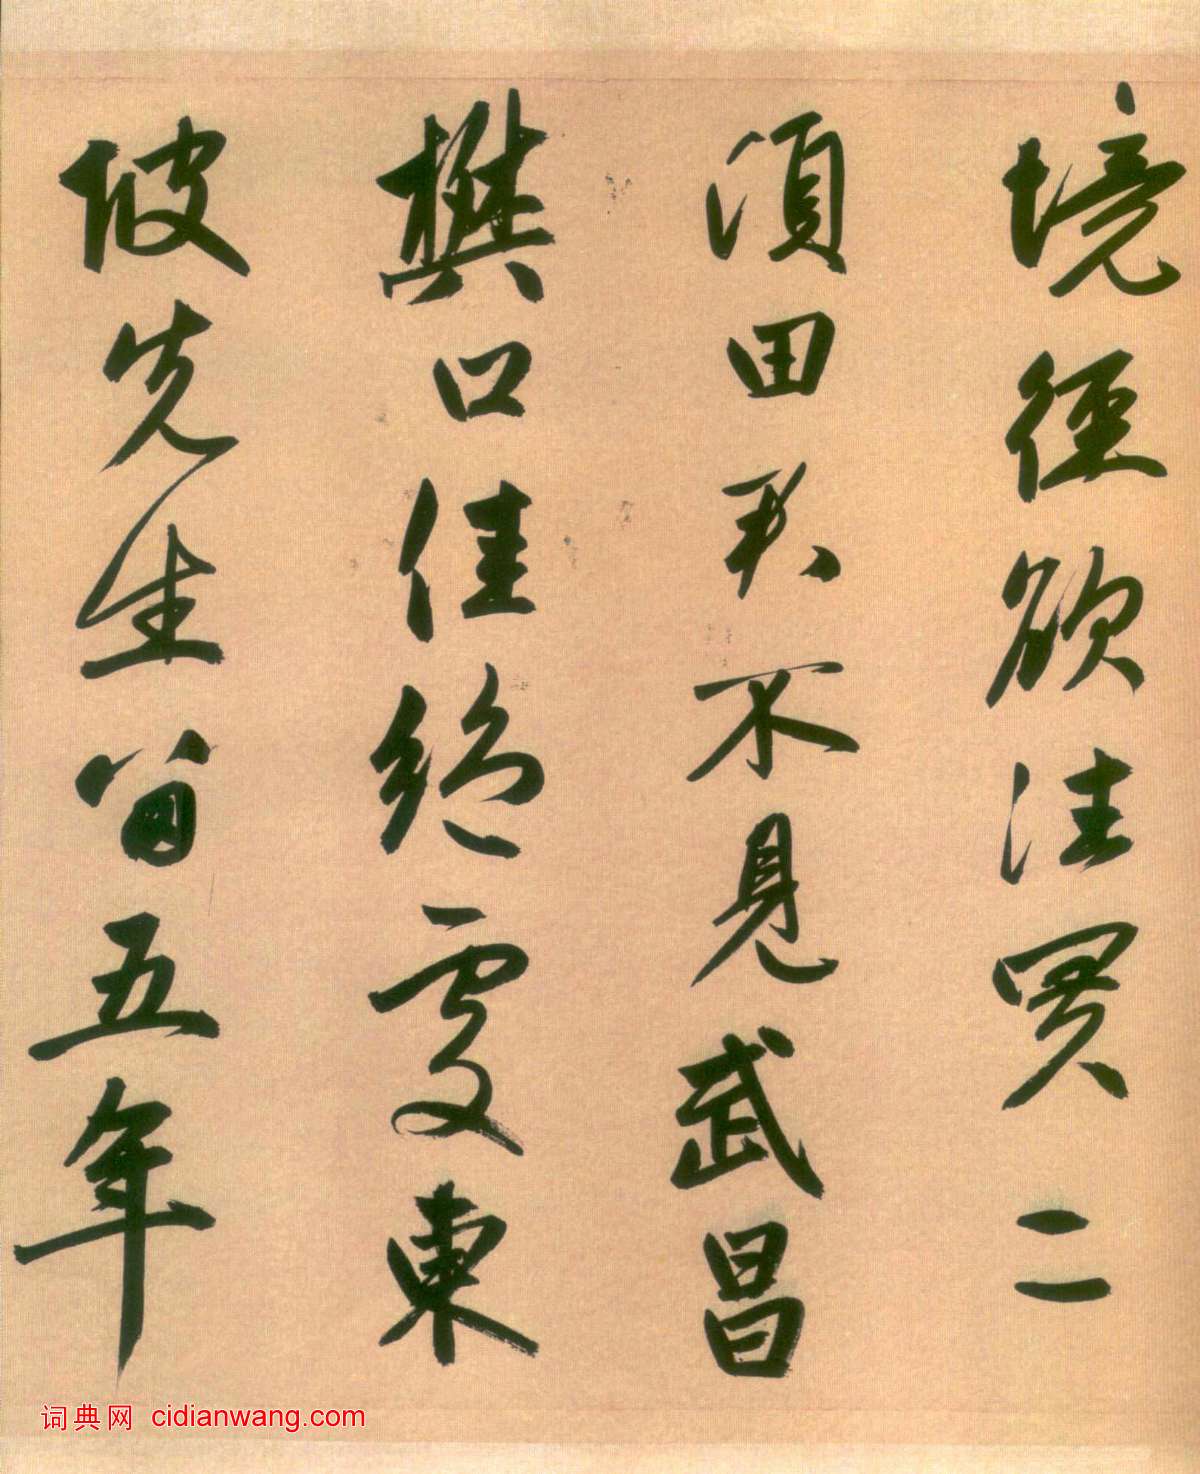 境徑欲往買二
頃田君不見武昌
樊口佳絕處東
坡先生留五年
词典网 cidianwang.com